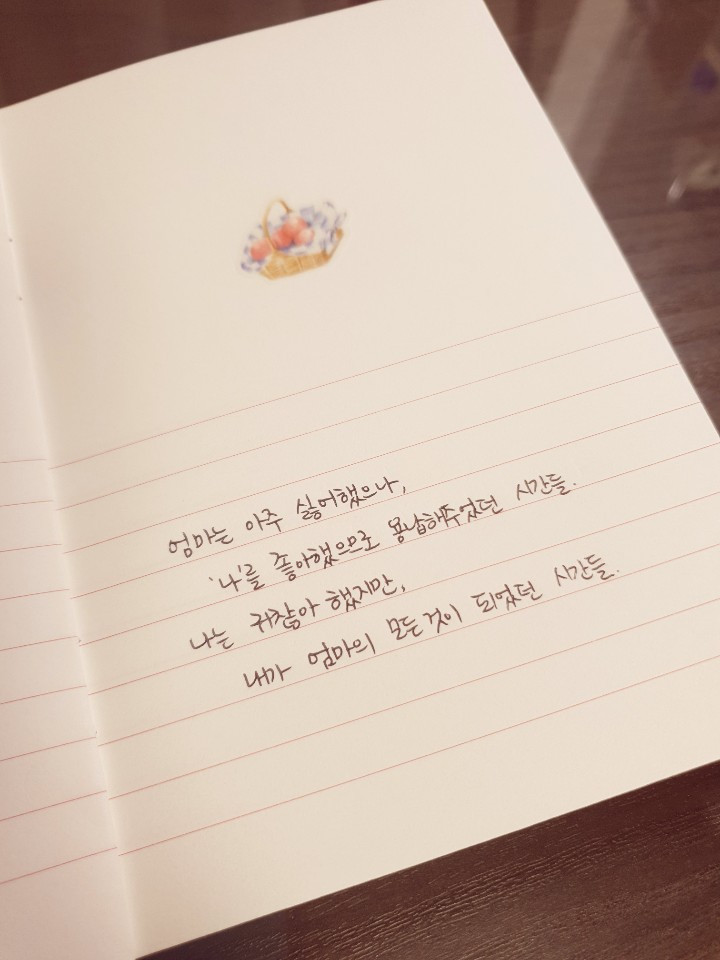 엄마는 아주 싫어했으나,
'나'를 좋아했으므로 용납해주었던 시간들.
나는 귀찮아 했지만,
내가 엄마의 모든것이 되었던 시간들.